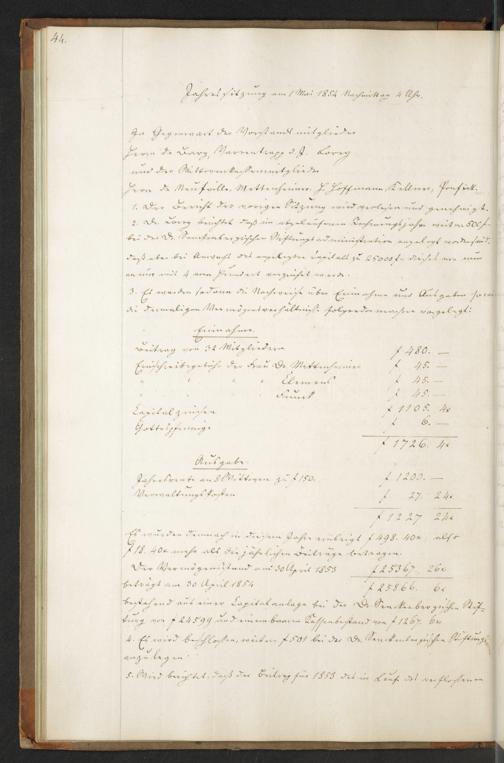 44.
Jahressitzung am 1 Mai 1854 Nachmittag 4 Uhr.
In Gegenwart der Vorstandsmitglieder
Herrn de Bary, Varrentrapp & J. Lorey
und der Wittwenkassenmitglieder
Herrn de Neufville, Mettenheimer, H. Hoffmann, Kellner,
1. Der Bericht der vorigen Sitzung wird verlesen und genehmigt.
2. Dr. Lorey berichtet daß im abgelaufenen Rechnungsjahre weitere 500 f
bei der Dr. Senckenbergischen Stiftungsadministration angelegt worden sind,
daß aber bei Anwachs des angelegten Capitals zu 25000 f. dieses nun
nur mit 4 vom Hundert verzinst werde.
3. Es werden sodann die Nachweise über Einnahme und Ausgaben
die dermaligen Vermögensverhältnisse folgendermaßen vorgelegt:
Einnahme.
Beitrag von 32 Mitgliedern f 480. —
Einschreibegebühr der Frau Dr. Mettenheimer f 45. —
" " " " Clemens f 45. —
" " f 45. —
Capitalzinsen f 1105. 4x
Gottespfennige f 6. —
f 1726. 4x
Ausgabe.
Jahresrente an 8 Wittwen zu f 150. f 1200. —
Verwaltungskosten f 27. 24x
f 1227 24x
Es wurden demnach in diesem Jahre erübrigt f 498. 40x, also
f 18. 40x mehr als die jährlichen Beiträge betragen.
Der Vermögensstand am 30 April 1853 f 25367. 26x
beträgt am 30 April 1854 f 25866. 6x
bestehend aus einer Capitalanlage bei der Dr. Senckenbergischen Stif-
tung von f 24599 und einem baaren Cassenbestand von f 1267. 6x
4. Es wird beschlossen, weitere f 501 bei der Dr. Senckenbergischen Stiftung
anzulegen.
5. Wird berichtet, daß der Beitrag für 1853 des im Lauf des verflossenen